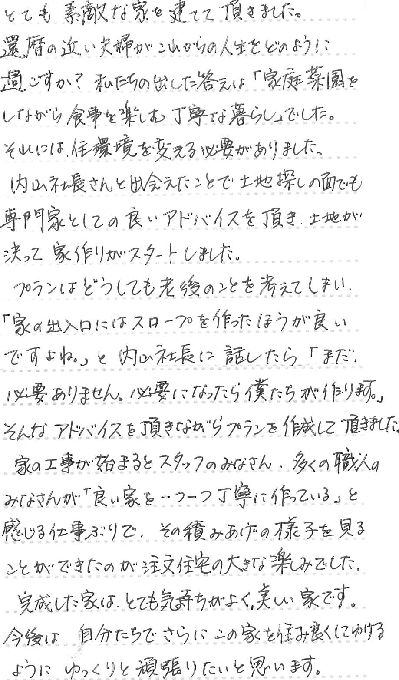 とても 素敵な家を建てて頂きました。
還暦の近い夫婦がこれからの人生をどのように
過ごすか？ 私たちの出した答えは「家庭菜園を
しながら食事を楽しむ丁寧な暮らし」でした。
それには、住環境を変える必要がありました。
内山社長さんと出会えたことで土地探しの面でも
専門家としての良いアドバイスを頂き、土地が
決って 家作りがスタートしました。
プランはどうしても老後のことを考えてしまい、
「家の出入口にはスロープを作ったほうが良い
ですよね。」と 内山社長に 話したら 「まだ、
必要ありません。必要になったら僕たちが作ります。」
そんな アドバイスを頂きながらプランを作成して頂きました。
家の工事が始まるとスタッフのみなさん、多くの職人の
みなさんが「良い家を一つ一つ丁寧に作っている」と
感じる仕事ぶりで、その積みあげの様子を見る
ことができたのが注文住宅の大きな楽しみでした。
完成した家は、とても気持ちがよく、美しい家です。
今後は 自分たちでさらにこの家を住み良くしてゆける
ように ゆっくりと頑張りたいと思います。